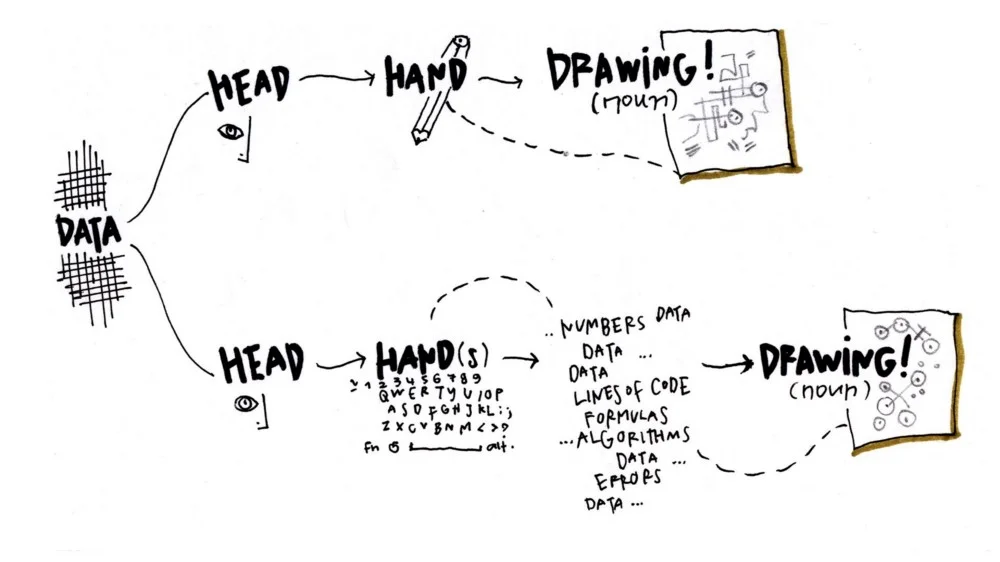 DATA
HEAD
HAND
DRAWING!
(noun)
HEAD
HAND(s)
~ 1 2 3 4 5 6 7 8 9
Q W E R T Y U I O P
A S D F G H J K L : ;
Z X C V B N M < > ?
fn
alt.
.. NUMBERS DATA
DATA ...
DATA
LINES OF CODE
FORMULAS
... ALGORITHMS
DATA ...
ERRORS
DATA ...
DRAWING!
(noun)